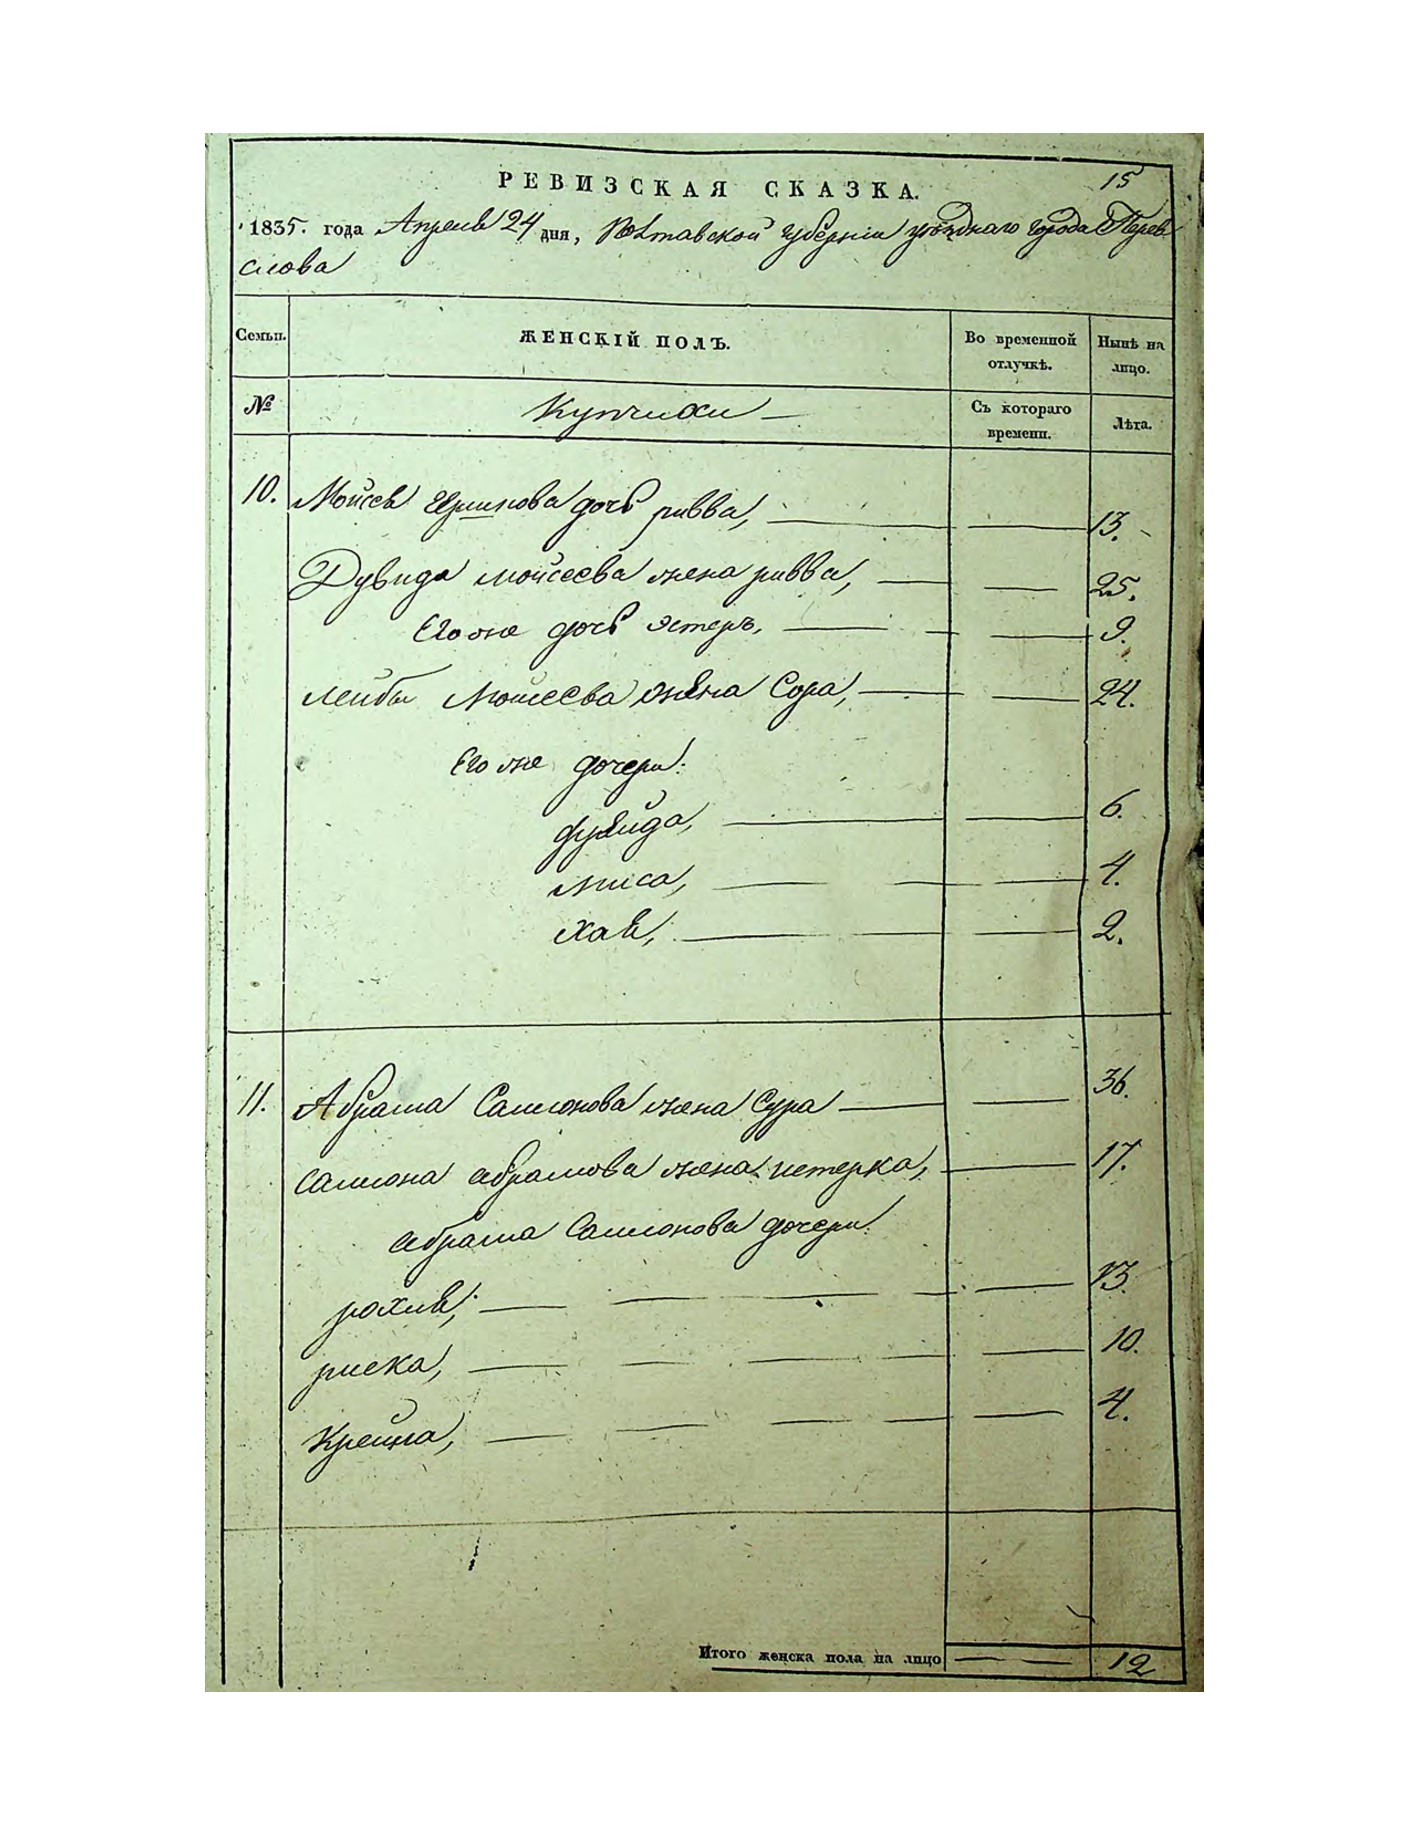 15
РЕВИЗСКАЯ СКАЗКА.
1835. года Апреля 24 дня, Полтавской губернии уезднаго города Перея
слова
Семьи. ЖЕНСКІЙ ПОЛЪ. Во временной отлучкѣ. Нынѣ на лицо.
№ Купчихи — Съ котораго времени. Лѣта.
10. Мойсея дочь ривва, — — 13.
Дувида мойсеева жена ривва, — — 25.
Его же дочь эстеръ, — — 9.
лейбы Мойсеева жена Сора, — — 24.
Его же дочери:
фрейда, — — 6.
миса, — — 4.
хая, — — 2.
11. Абрама Самионова жена Сура — — 36.
самиона абрамова жена истерка, — 17.
абрама Самионова дочери:
рохля, — — 13.
риска, — — 10.
Крейна, — — 4.
Итого женска пола на лицо — — 12